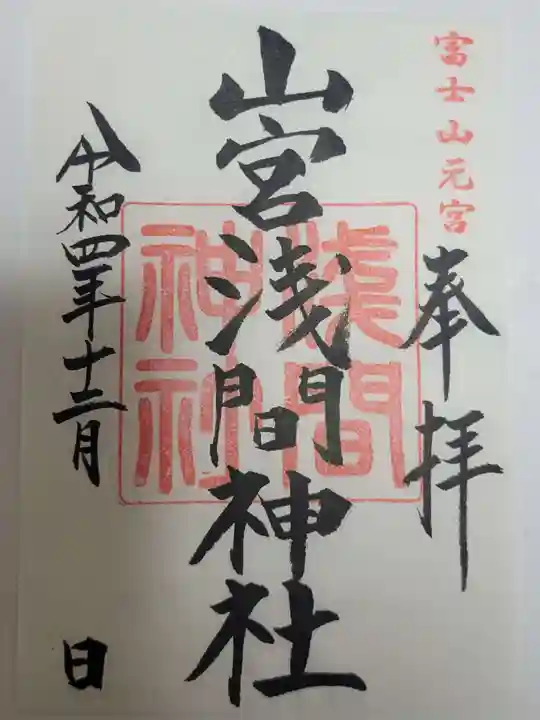 富士山元宮
奉拝
山宮浅間神社
浅間
神社
令和四年十二月
日